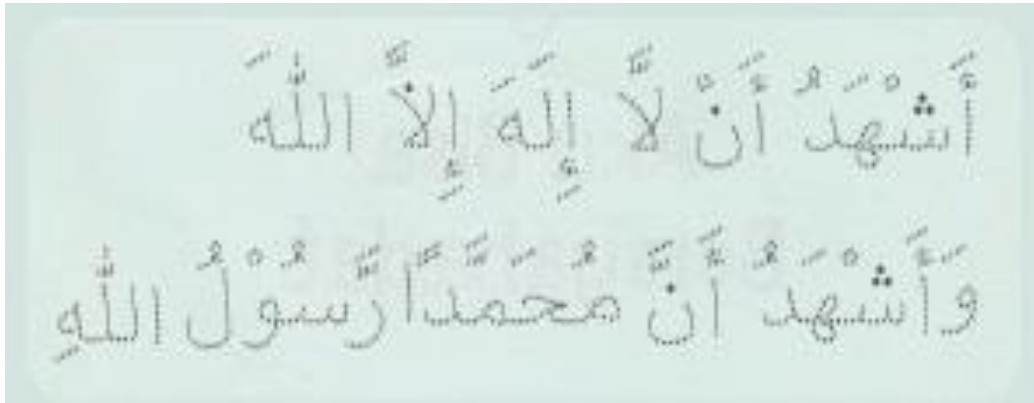 أَشْهَدُ أَنْ لَّا إِلَهَ إِلَّا اللَّهَ
وَأَشْهَدُ أَنَّ مُحَمَّدَاً رَّسُوْلُ اللَّهِ